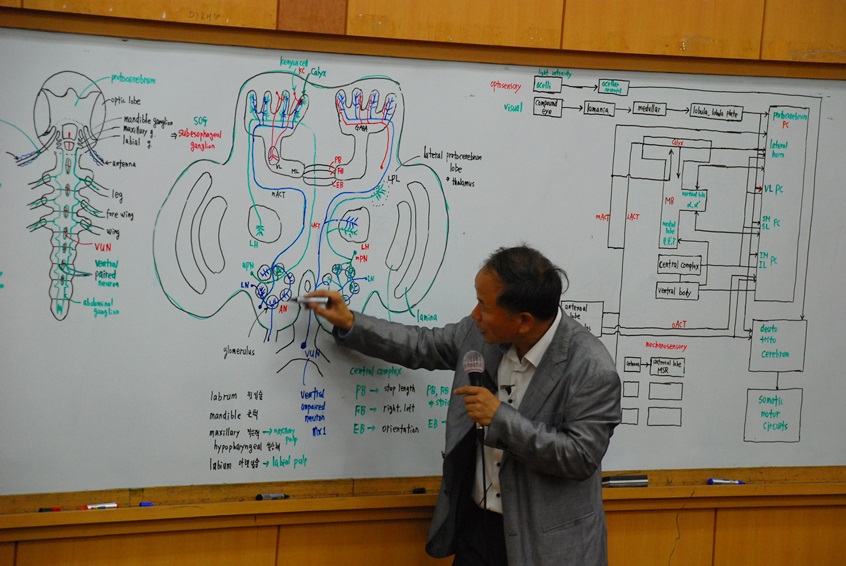 protocerebrum
optic lobe
mandible ganglion
maxillary g.
labial g.
antenna
leg
fore wing
wing
VUN
ventral
paired
neuron
abdominal
ganglion
SOG
⇒ subesophageal
ganglion
kenyun cell
KC
calyx
VL
ML
PB
FB
EB
mACT
lACT
LPL
lateral protocerebrum
lobe
* thalamus
LH
LH
mPN
LN
LN
AN
glomerulus
VUN
ventral
unpaired
neuron
mx 1
lamina
labrum
mandible
maxillary → maxillary
palp
hypopharyngeal
labium 아랫입술 → labial palp
central complex
PB → step length
FB → right. left
EB → orientation
PB, FB
light intensity
optosensory
ocelli
ocellar
visual
compound
eye
lamarca
medullar
lobula, lobula plate
protocerebrum
PC
lateral
horn
VL PC
SM
SL PC
IM
IL PC
calyx
MB
vertical lobe
α, α'
medial
lobe
β, β', γ
mACT
lACT
central complex
ventral body
antennal
lobe
oACT
mechanosensory
antenna
antennal lobe
MSR
deuto
trito
cerebrum
somatic
motor
circuits